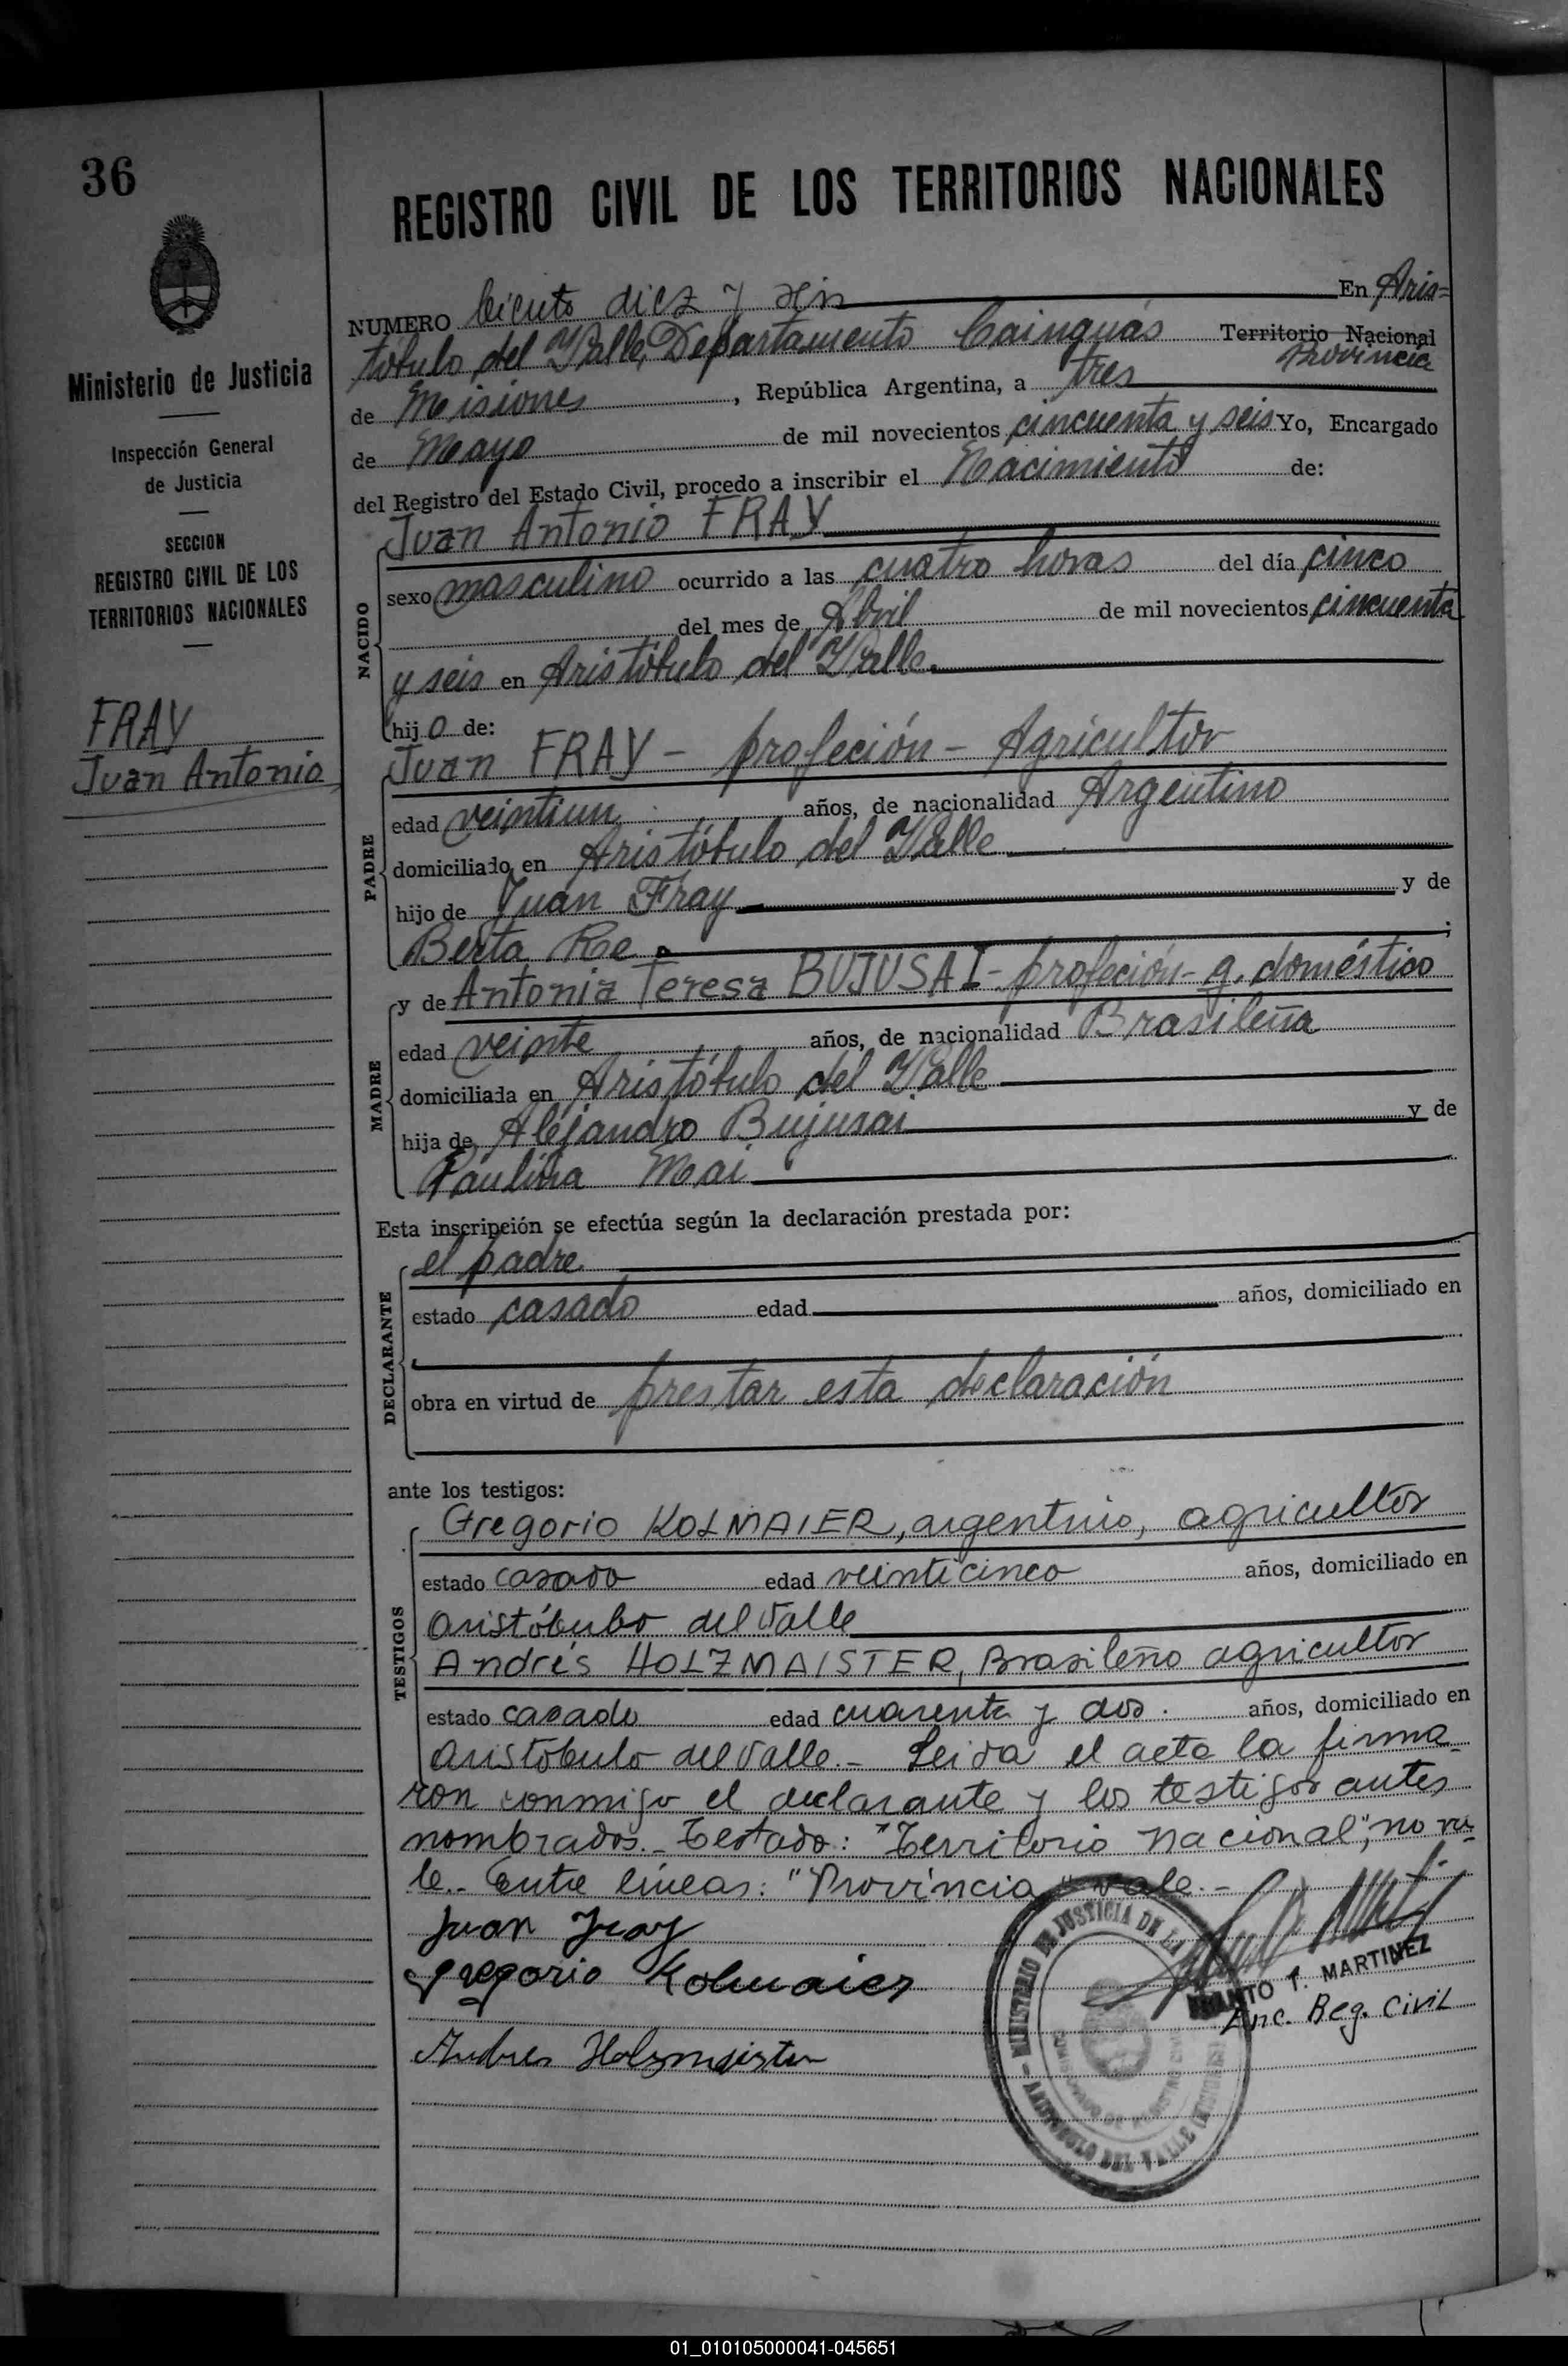 36
REGISTRO CIVIL DE LOS TERRITORIOS NACIONALES
Ministerio de Justicia
Inspección General
de Justicia
SECCION
REGISTRO CIVIL DE LOS
TERRITORIOS NACIONALES
FRAY
Juan Antonio
NUMERO Ciento diez y seis En Aris=
tóbulo del Valle, Departamento Cainguás Territorio Nacional
Provincia
de Misiones, República Argentina, a tres
de Mayo de mil novecientos cincuenta y seis Yo, Encargado
del Registro del Estado Civil, procedo a inscribir el Nacimiento de:
NACIDO
Juan Antonio FRAY
sexo masculino ocurrido a las cuatro horas del día cinco
del mes de Abril de mil novecientos cincuenta
y seis en Aristóbulo del Valle.
hijo de:
PADRE
Juan FRAY - profeción - Agricultor
edad veintiun años, de nacionalidad Argentino
domiciliado en Aristóbulo del Valle
hijo de Juan Fray y de
Berta Re ;
MADRE
y de Antonia Teresa BUJUSAI - profeción - q. doméstico
edad veinte años, de nacionalidad Brasileña
domiciliada en Aristóbulo del Valle
hija de Alejandro Bujusai y de
Paulina Mai
Esta inscripción se efectúa según la declaración prestada por:
DECLARANTE
el padre
estado casado edad años, domiciliado en
obra en virtud de prestar esta declaración
ante los testigos:
TESTIGOS
Gregorio KOLMAIER, argentino, agricultor
estado casado edad veinticinco años, domiciliado en
Aristóbulo del Valle
Andrés HOLZMAISTER, Brasileño agricultor
estado casado edad cuarenta y dos. años, domiciliado en
Aristóbulo del Valle.- Leida el acta la firma-
ron conmigo el declarante y los testigos antes
nombrados.- Testado: "Territorio Nacional", no va-
le.- Entre líneas: "Provincia" vale.-
Juan Fray
Gregorio Kolmaier
Andres Holzmeister
MINISTERIO DE JUSTICIA DE LA
ARISTOBULO DEL VALLE
T. MARTINEZ
Enc. Reg. Civil
01_010105000041-045651